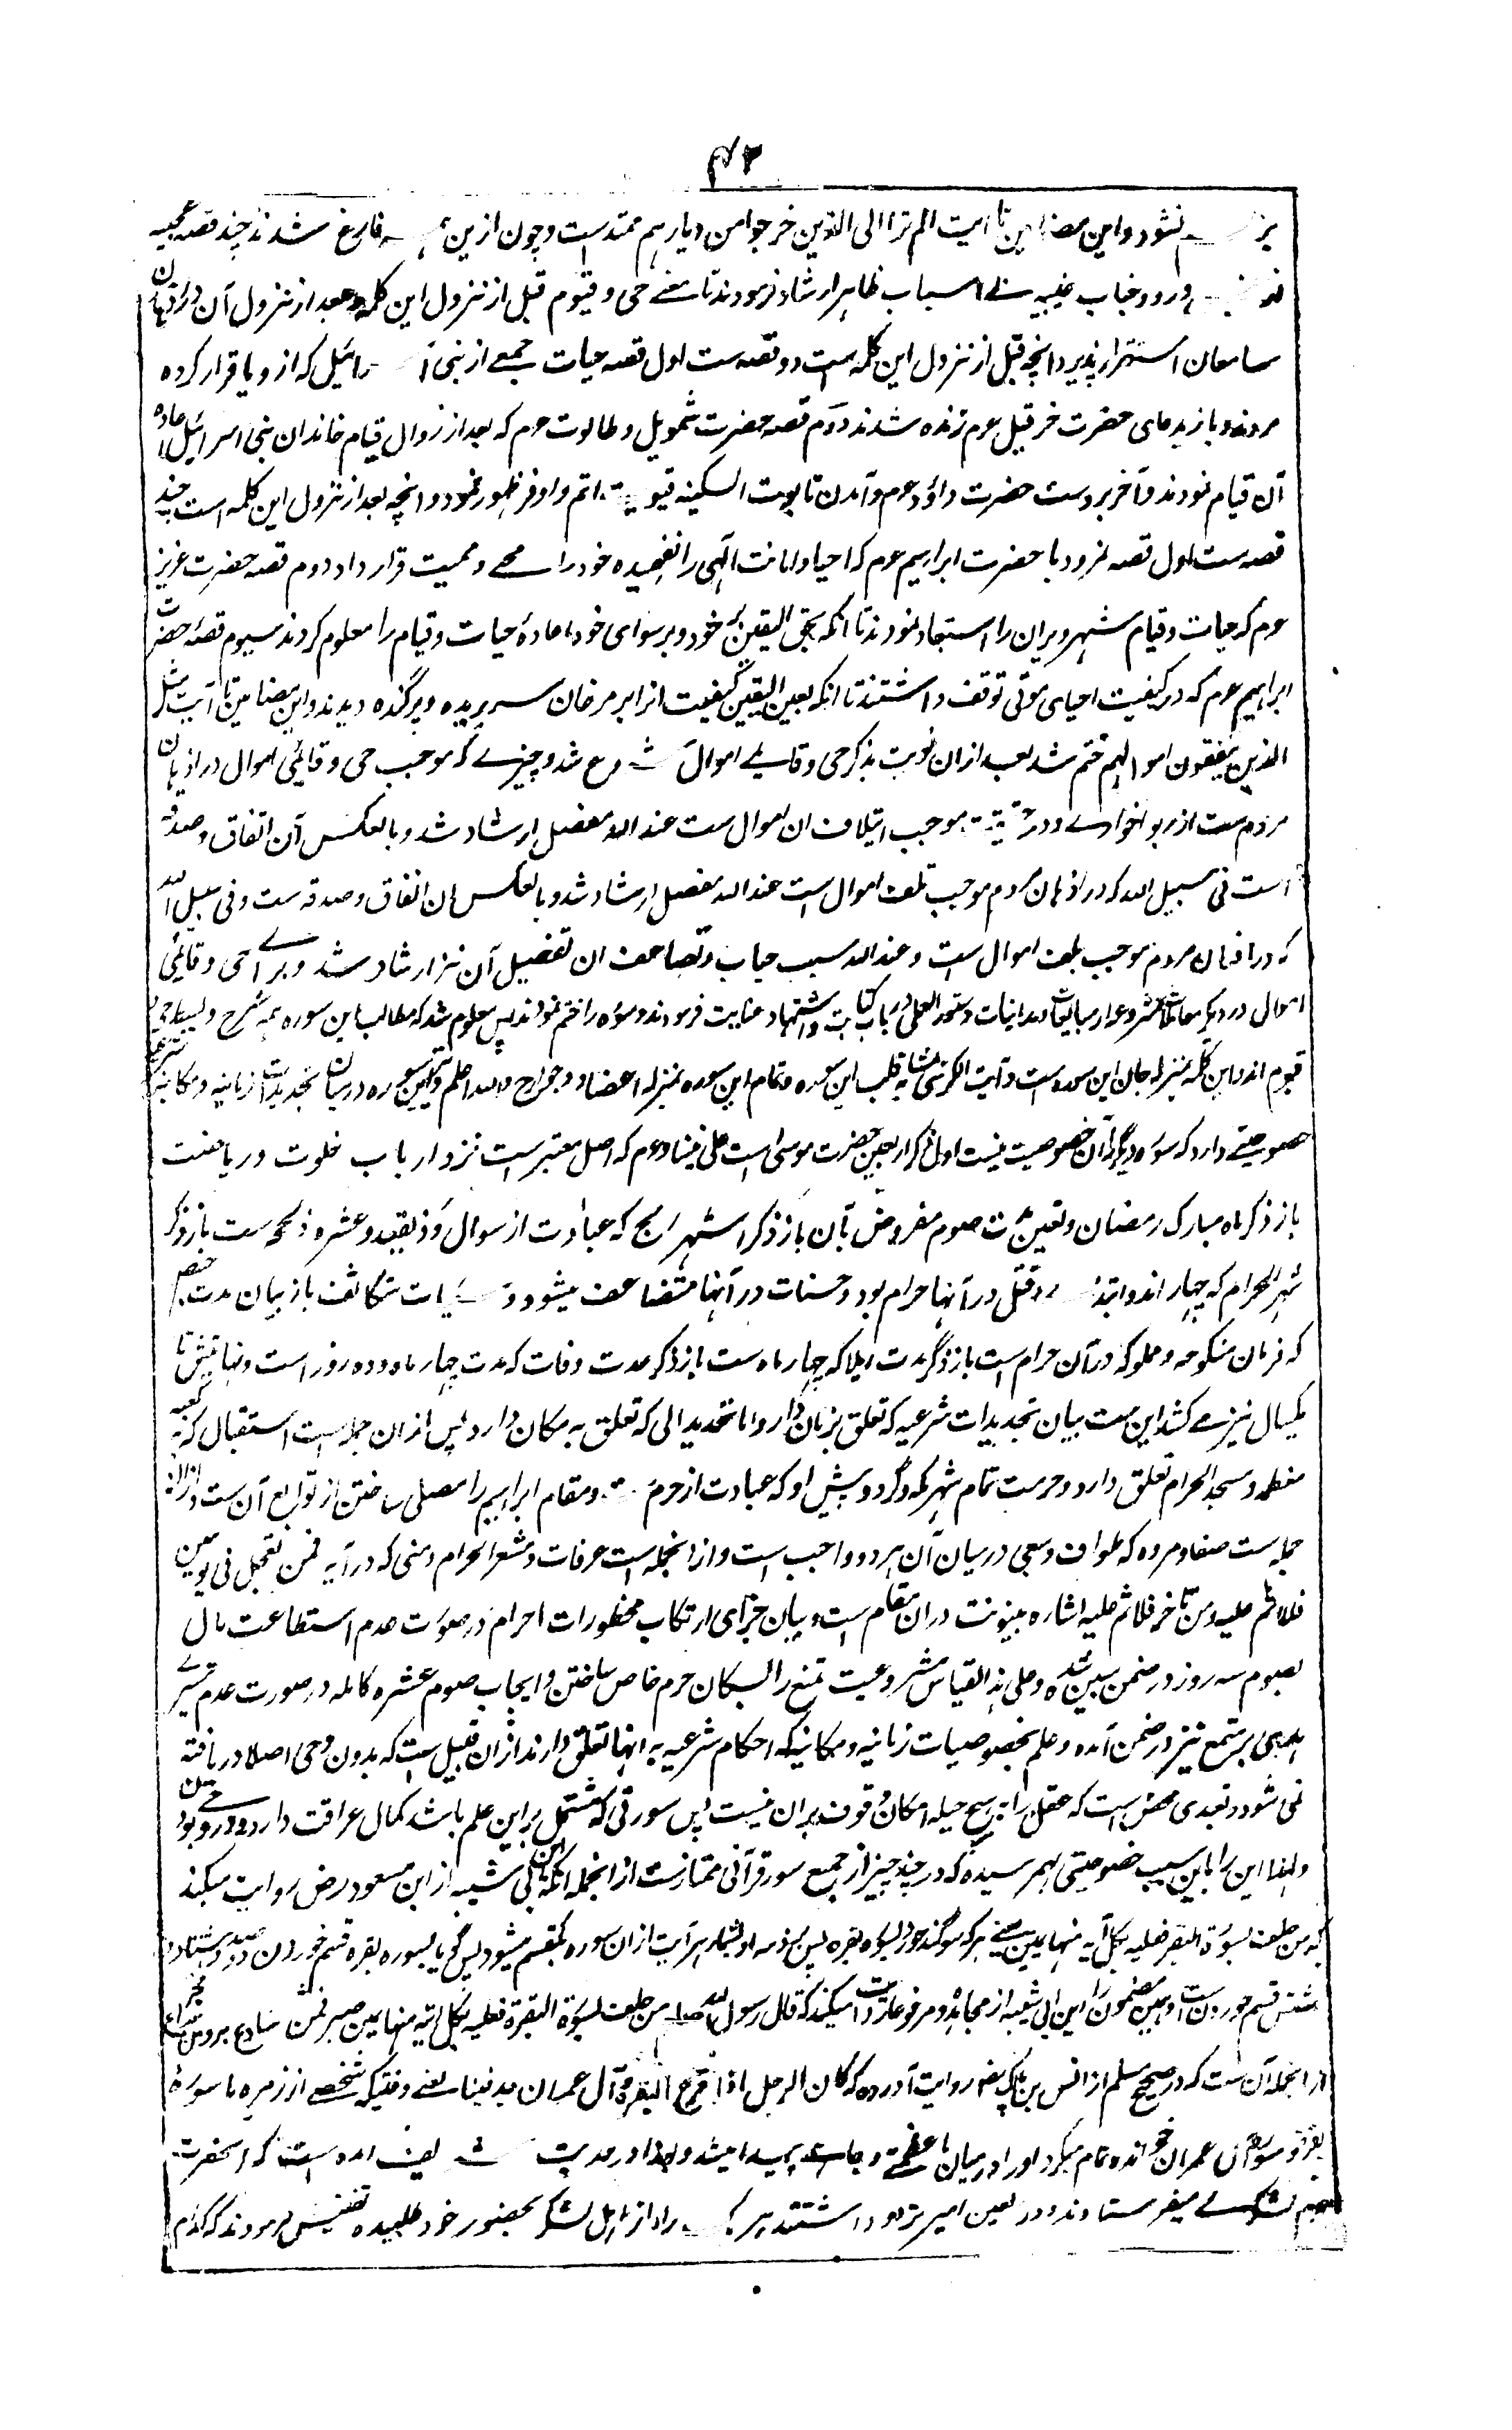 ۴۲
نشود و این مضامین تا آیت الم تر الی الذین خرجوا من دیارهم ممتد است و چون ازین فارغ شدند چند قصه عجیبه
ورود جناب غیبیه بی اسباب ظاهر ارشاد فرمودند تا معنی حی و قیوم قبل از نزول این کلمه و بعد از نزول آن در اذهان
سامعان استقرار پذیرد انچه قبل از نزول این کلمه است دو قصه ست اول قصه حیات جمعی از بنی اسرائیل که از وبا فرار کرده
مردند و باز بدعای حضرت حزقیل عم زنده شدند دوم قصه حضرت شمویل و طالوت عم که بعد از زوال قیام خاندان بنی اسرائیل اعاده
آن قیام نمودند و آخر بر دست حضرت داؤد عم و آمدن تابوت السکینه قیومیت اتم و اوفر ظهور نمود و انچه بعد از نزول این کلمه است چند
قصه ست اول قصه نمرود با حضرت ابراهیم عم که احیا و اماتت الهی را نفهمیده خود را محی و ممیت قرار داد دوم قصه حضرت عزیر
عم که حیات و قیام شهر ویران را استبعاد نمودند تا آنکه بحق الیقین در خود و بر سواری خود اعادۀ حیات و قیام را معلوم کردند سیوم قصۀ حضرت
ابراهیم عم که در کیفیت احیای موتی توقف داشتند تا آنکه بعین الیقین کیفیت انرا بر مرغان سر بریده و پرکنده دیدند و این مضامین تا آیت مثل
الذین ینفقون اموالهم ختم شد بعد ازان نوبت بذکر حی و قایمی اموال شروع شد و چیزے که موجب حی و قائمی اموال در اذهان
مردم ست از ربوا خواری و در حقیقت موجب اتلاف ان اموال ست عند الله مفصل ارشاد شد و بالعکس آن انفاق و صدقه
است فی سبیل الله که در اذهان مردم موجب تلف اموال است عند الله مفصل ارشاد شد و بالعکس ان انفاق و صدقه ست و فی سبیل الله
که در اذهان مردم موجب تلف اموال ست و عند الله سبب حیات و تضاعف ان تفصیل آن نیز ارشاد شد و برای حی و قائمی
اموال در دیگر معاملات مشروعه از مبایعات و مداینات دستور العملی در باب کتابت و اشتهاد عنایت فرمودند و سوره را ختم نمودند پس معلوم شد که مطالب این سوره همه شرح و بسط حی و
قیوم اند و این کلمه بمنزله جان این سوره ست و آیت الکرسی بمثابه قلب این سوره و تمام این سوره بمنزله اعضا و جوارح والله اعلم و نیز این سوره در بیان تحدیدات شرعیه ازمانیه و مکانیه
خصوصیتی دارد که سوره دیگر را آن خصوصیت نیست اول ذکر اربعین حضرت موسی است علی نبینا و عم که اصل معتبر است نزد ارباب خلوت و ریاضت
باز ذکر ماه مبارک رمضان و تعین مدت صوم مفروض بآن باز ذکر اشهر حج که عبارت از شوال و ذیقعد و عشره ذیحجه ست باز ذکر
شهر الحرام که چهار اند و ابتداء قتل در آنها حرام بود و حسنات در آنها متضاعف میشود و سیآت متکاثف باز بیان مدت حیض
که قربان منکوحه و مملوکه در آن حرام است باز ذکر مدت ایلا که چهار ماه ست باز ذکر عدت وفات که مدت چهار ماه و ده روز است و نهایتش تا
یکسال نیز می کشد این ست بیان تحدیدات شرعیه که تعلق بزمان دارد اما تحدیداتی که تعلق به مکان دارد پس از ان جمله ست استقبال که به کعبه
معظمه و مسجد الحرام تعلق دارد و حرمت تمام شهر مکه و گرد و پیش او که عبارت از حرم ست و مقام ابراهیم را مصلی ساختن از توابع آن ست و ازان
جمله ست صفا و مروه که طواف و سعی درمیان آن هر دو واجب است و از انجمله است عرفات و مشعر الحرام و منی که در آیه فمن تعجل فی یومین
فلا اثم علیه و من تاخر فلا اثم علیه اشاره بینونت دران مقام است و بیان جزای ارتکاب محظورات احرام در صورت عدم استطاعت مال
بصوم سه روز در ضمن مبین شده و علی هذا القیاس مشروعیت تمتع را بسکان حرم خاص ساختن و ایجاب صوم عشره کامله در صورت عدم تیسر
هدی بر متمتع نیز در ضمن آمده و علم بخصوصیات زمانیه و مکانیه که احکام شرعیه به انها تعلق دارند ازان قبیل است که بدون وحی اصلا دریافته
نمی شود و تعبدی محض است که عقل را به هیچ حیله امکان وقوف بران نیست پس سورتی که مشتمل بر این علم باشد کمال عراقت دارد در وحی بودن
و لهذا این را باین سبب خصوصیتی بهم رسیده که در چند چیز از جمیع سور قرآنی ممتاز ست از انجمله آنکه ابن ابی شیبه از ابن مسعود رض روایت میکند
که من حلف بسورة البقرة فعلیه بکل آیه منها یمین یعنی هر که سوگند خورد بسوره بقره پس بر ذمه او بشمار هر آیت ازان سوره یک قسم میشود پس گویا بسوره بقره قسم خوردن دو صد و هشتاد و
شش قسم خوردن ست و همین مضمون را ابن ابی شیبه از مجاهد مرفوعا روایت میکند که قال رسول الله صلعم من حلف بسورة البقرة فعلیه بکل آیه منها یمین صبر فمن شاء بر و من شاء فجر
از انجمله آن ست که در صحیح مسلم از انس بن مالک رض روایت آورده که کان الرجل اذا قرء البقرة و آل عمران جد فینا یعنی وقتیکه شخصی از زمره ما سورۀ
بقره و سوره آل عمران خوانده تمام میکرد او را درمیان ما عظمتی و جاهی پیدا میشد و لهذا در حدیث شریف آمده است که آنحضرت
صلعم لشکری میفرستادند و در تعین امیر تردد داشتند هر یک را از اهل لشکر بحضور خود طلبیده تفتیش فرمودند که کدام